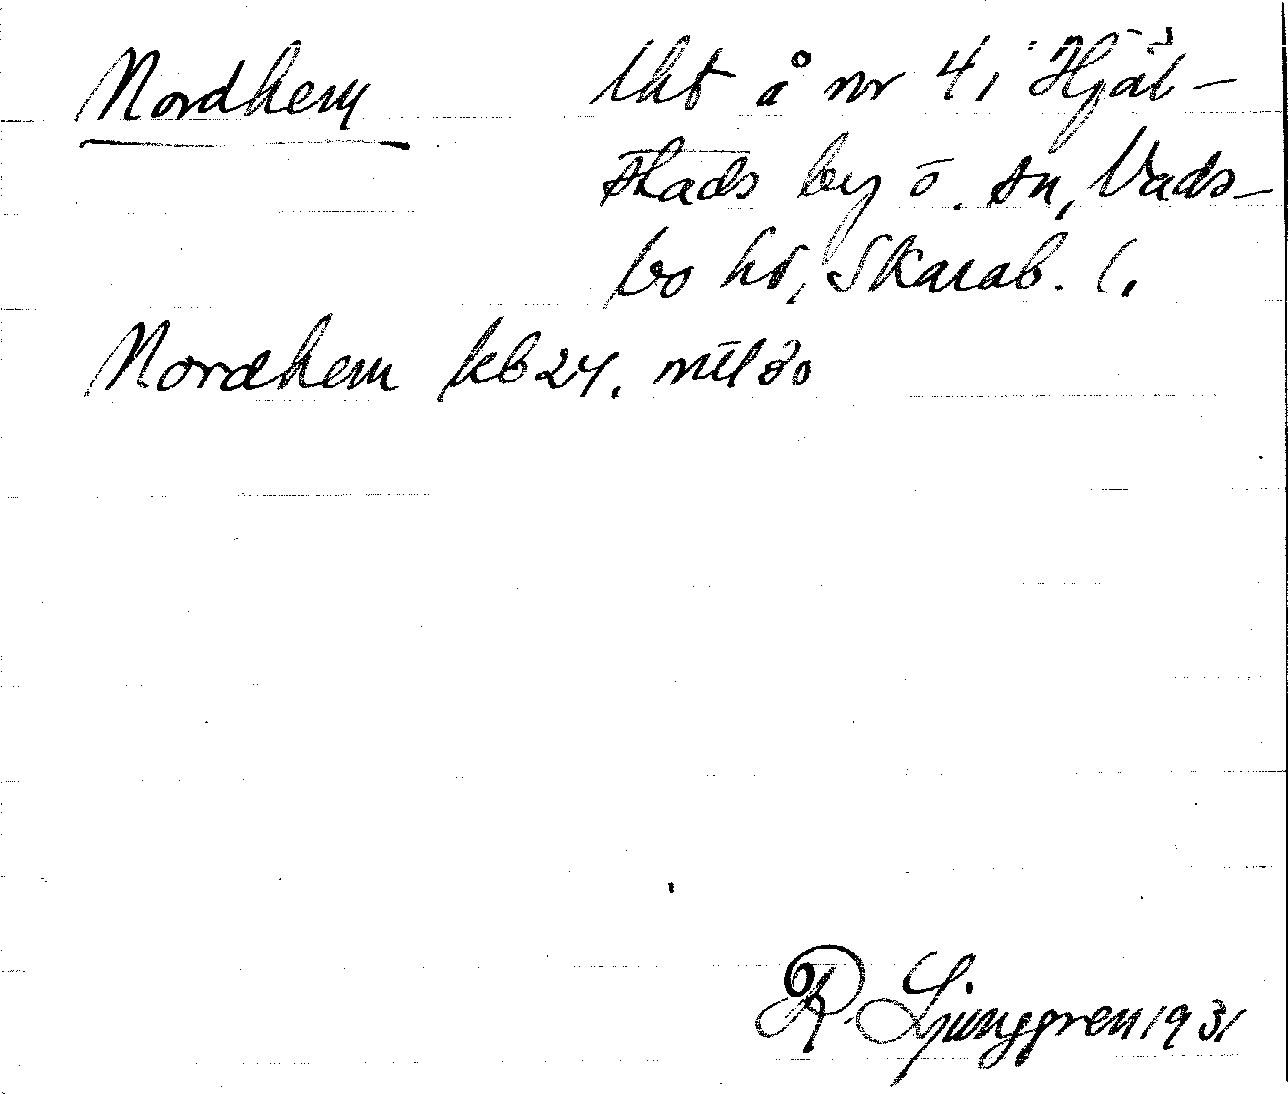 Nordhem lht å nr 4 i Hjäl-
stads by o. sn, Vads-
bo hd, Skarab. l.
Nordhem kb 24. mtl 30
R Ljunggren 1931